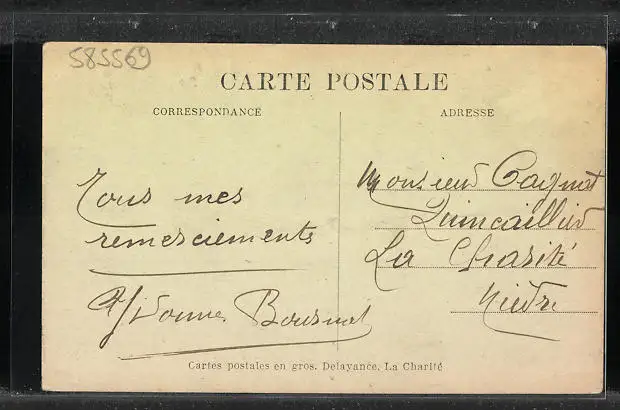 585569
CARTE POSTALE
CORRESPONDANCE
ADRESSE
Tous mes
remerciements
Yvonne
Monsieur Cagnat
Quincaillier
La Charité
Nièvre
Cartes postales en gros. Delayance, La Charité